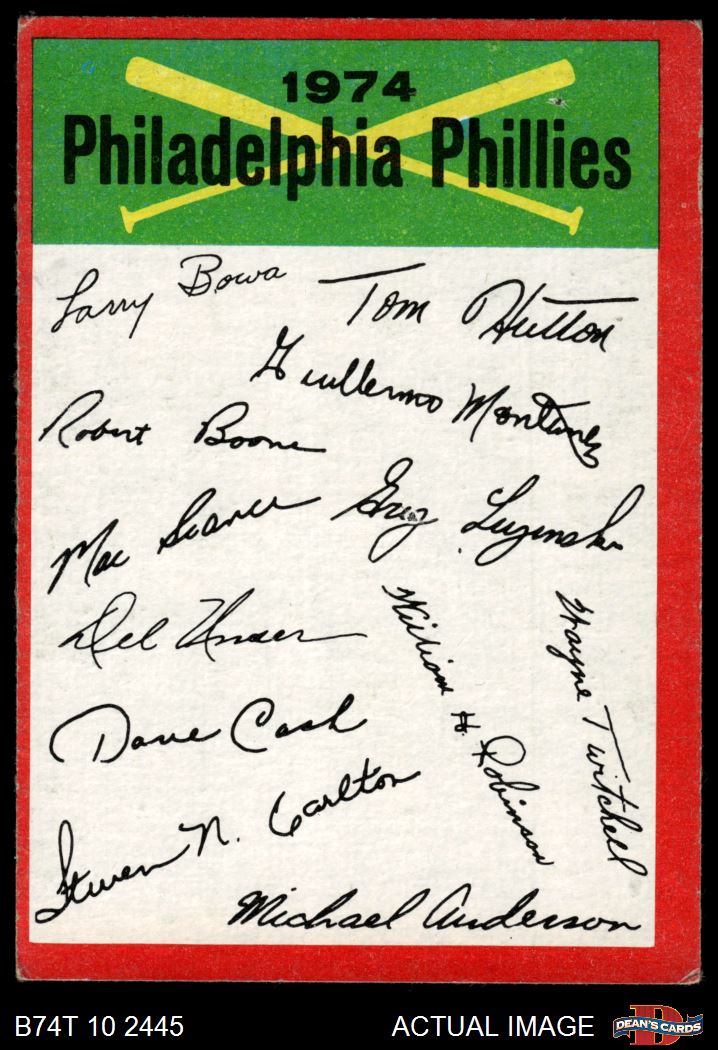 1974
Philadelphia Phillies
Larry Bowa
Tom Hutton
Guillermo Montanez
Robert Boone
Mac Scarce
Greg Luzinski
Del Unser
William H. Robinson
Wayne Twitchell
Dave Cash
Steven N. Carlton
Michael Anderson
B74T 10 2445
ACTUAL IMAGE
DEAN'S CARDS